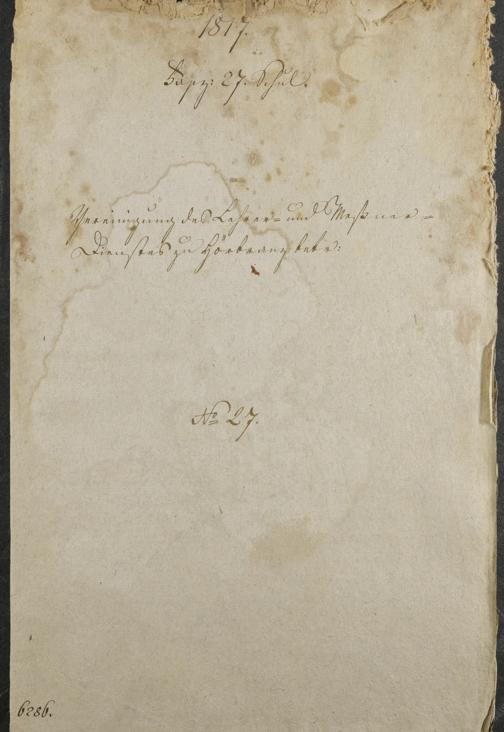 1817.
Fasz: 27. Schul.
Vereinigung des Lehrer- und Meßner-
Dienstes zu Hörbranz betr:
No 27.
6286.